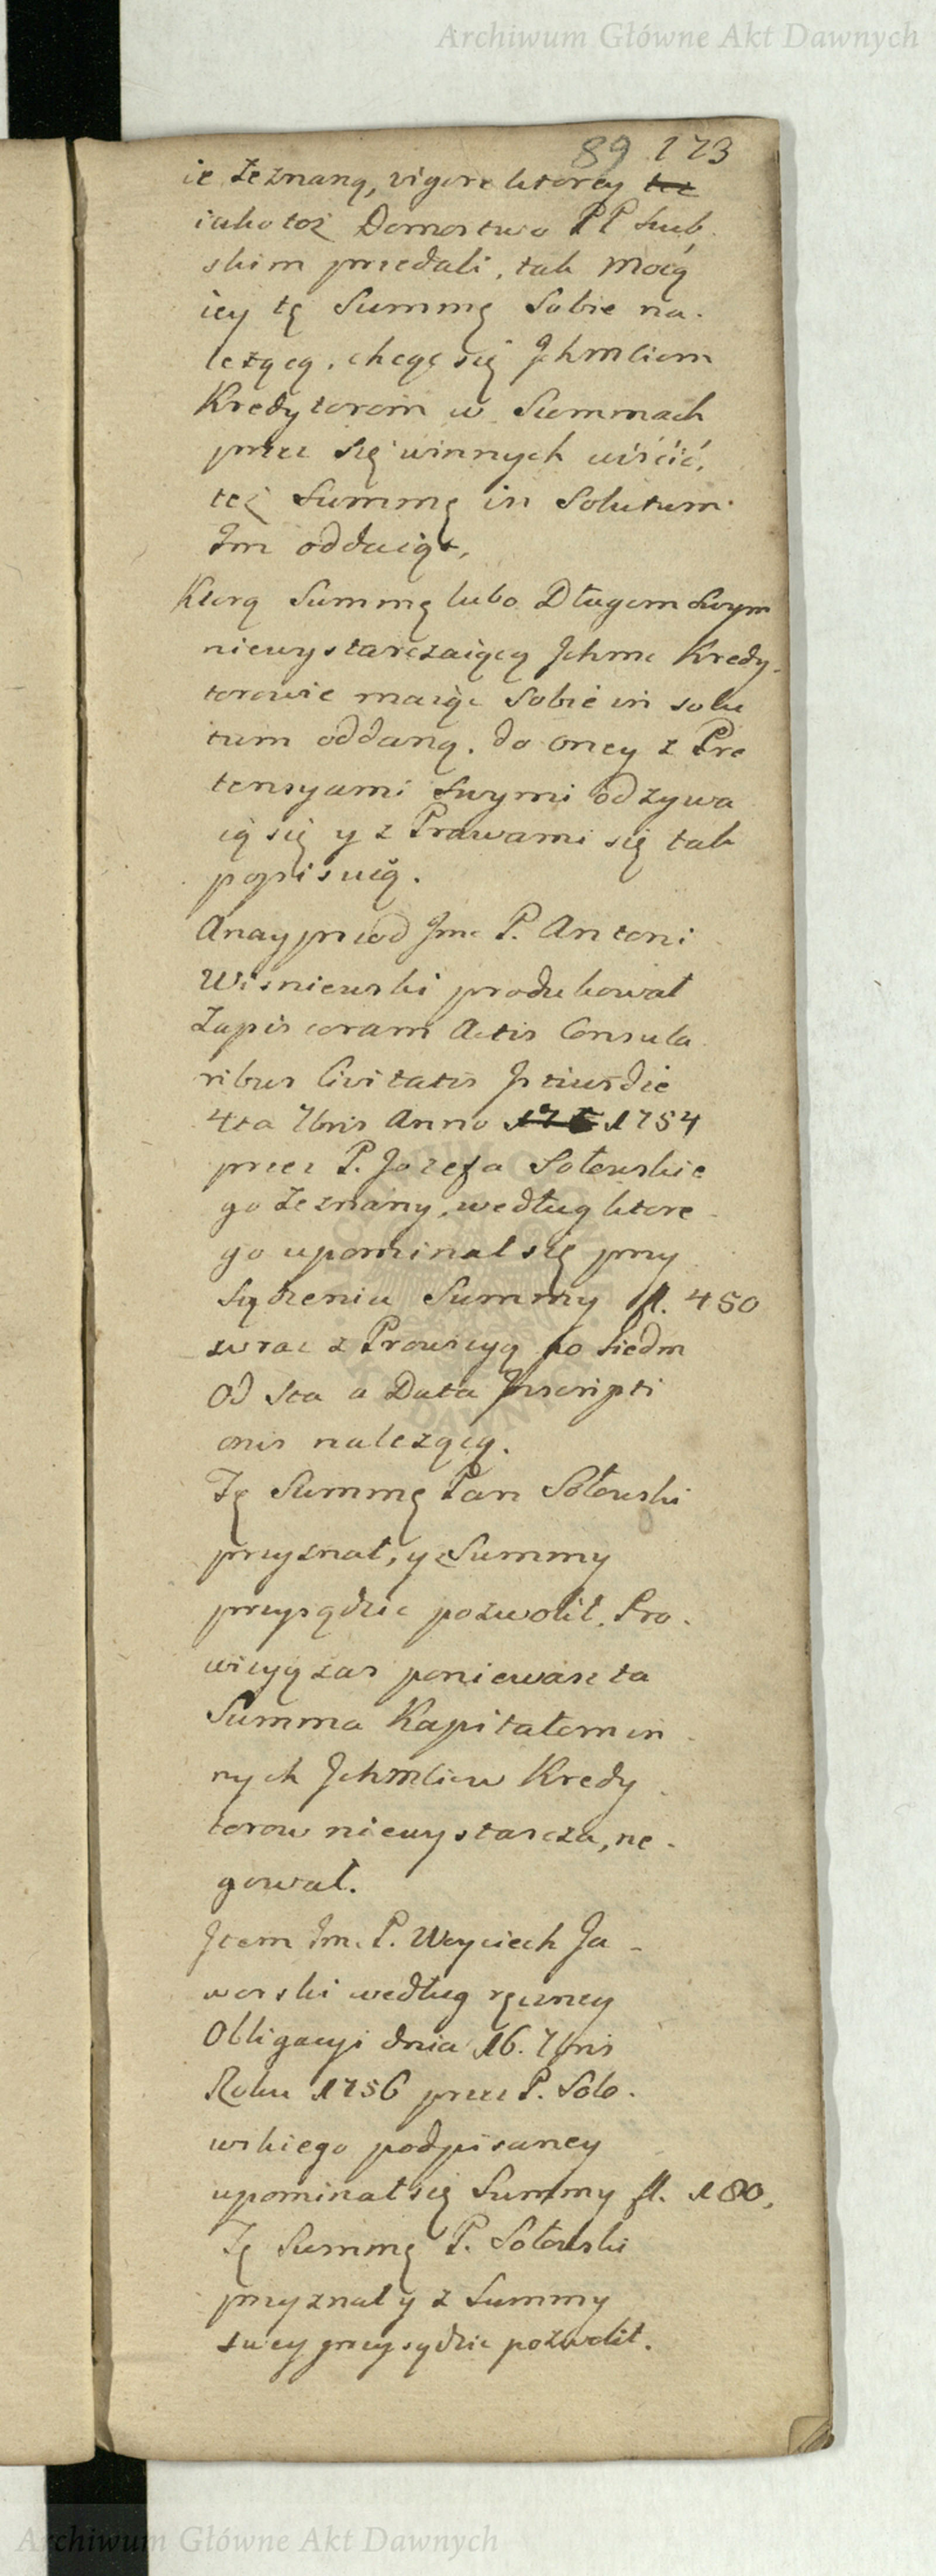 Archiwum Główne Akt Dawnych
89 173
ie zeznaną, vigore ktorey też
iako toż Domostwo PP Łub
skim przedali, tak Mocą
iey tę Summę Sobie na-
leżącą, chcąc się Jchmciom
Kredytorom w Summach
przez się winnych uiścić,
też Summę in Solutum
Im oddaią,
Ktorą Summę lubo Długom Swym
niewystarczaiącą Jchmc Kredy-
torowie maiąc Sobie in solu
tum oddaną, do oney z Pre
tensyami Swymi odzywa
ią się y z Prawami się tak
popisuią.
A nayprzod Jmc P. Antoni
Wisniewski produkował
Zapis coram Actis Consula
ribus Civitatis Istius die
4ta 7bris Anno 175 1754
przez P. Jozefa Sołowskie
go zeznany, według ktore-
go upominał się przy
Sądzeniu Summy fl. 450
wraz z Prowizyą po siedm
Od Sta a Data Inscripti
onis nalezącą.
Tę Summę Pan Sołowski
przyznał, y z Summy
przysądzic pozwolił, Pro-
wizyą zas poniewasz ta
Summa Kapitałom in
nych Jchmciow Kredy
torow niewystarcza, ne-
gował.
Item Jmc P. Woyciech Ja-
worski według ręczney
Obligacyi dnia 16. 7bris
Roku 1756 przez P. Soło-
wskiego podpisaney
upominał się Summy fl. 180,
Tę Summę P. Sołowski
przyznał y z Summy
swey przysądzic pozwolił.
Archiwum Główne Akt Dawnych